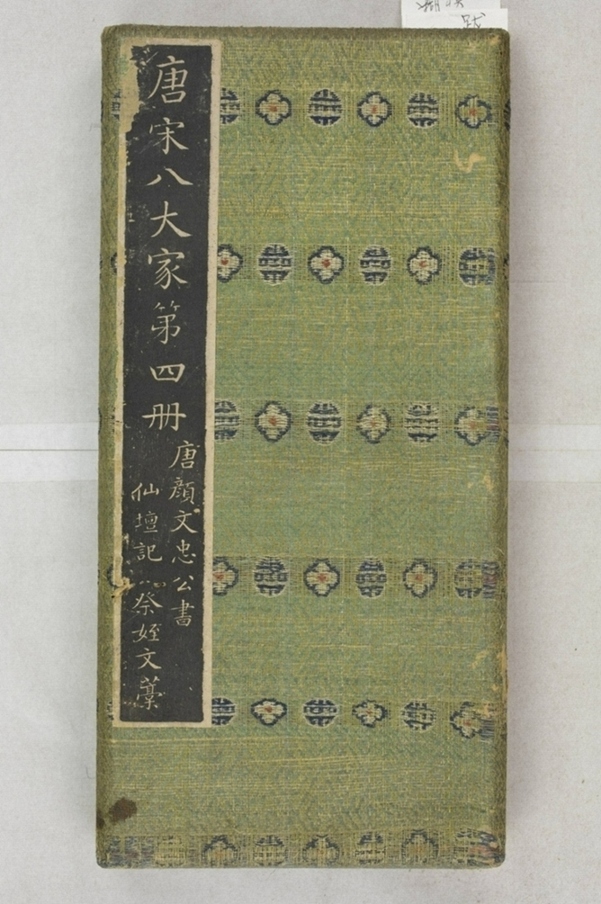 唐宋八大家第四册
唐顏文忠公書
仙壇記 祭姪文藁